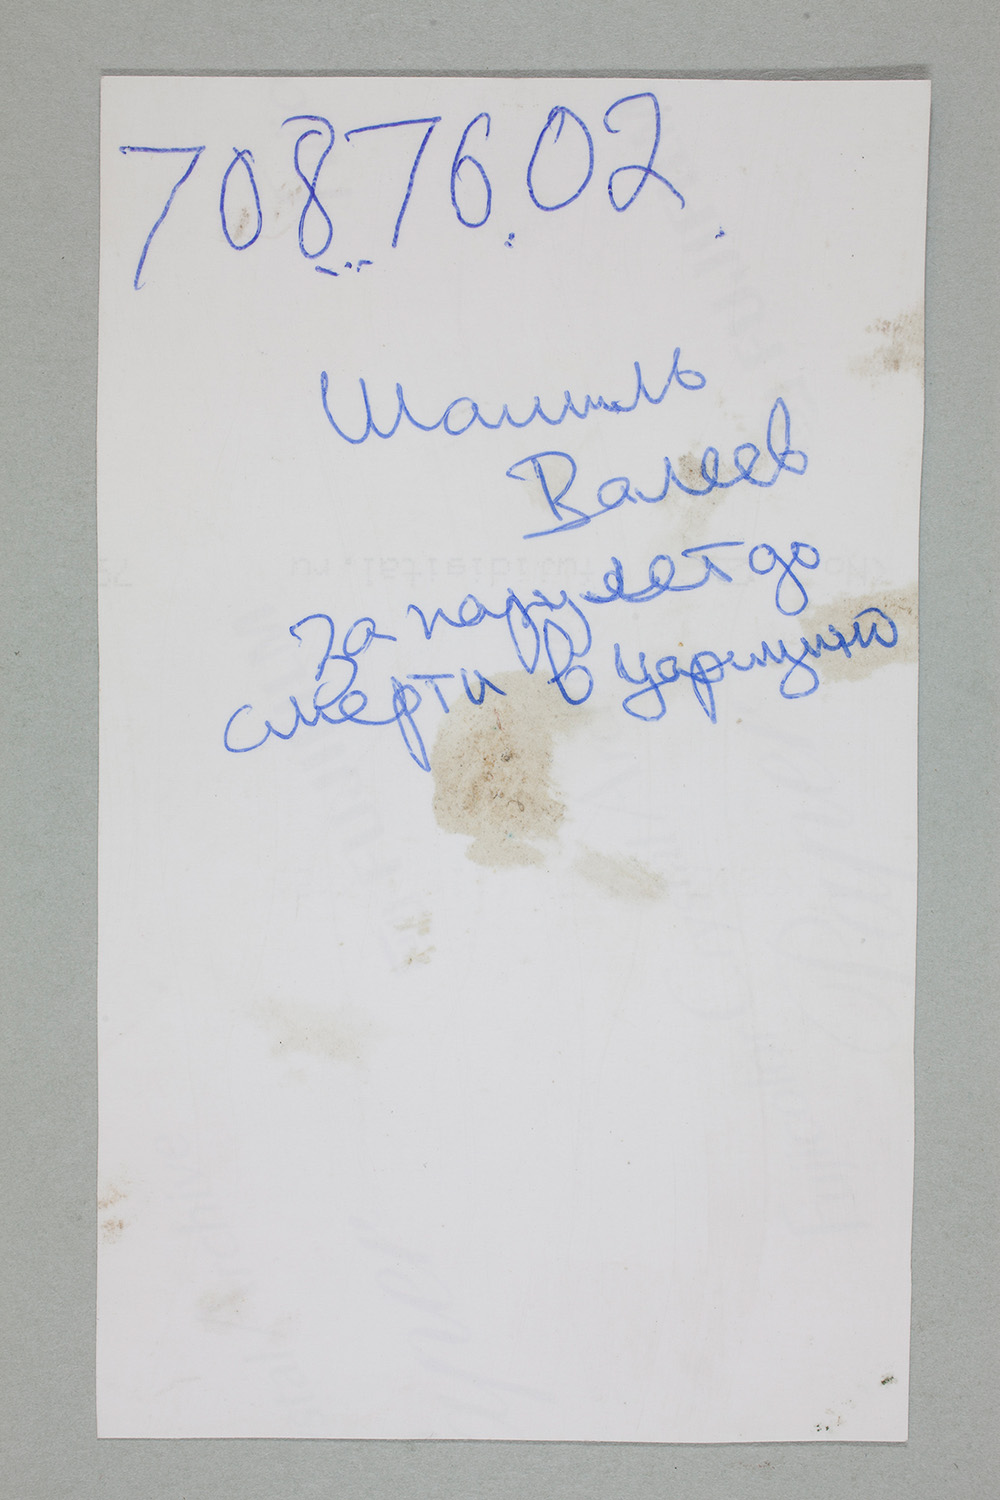 7087602
Шамиль
Валеев
за парует до
смерти в царицино